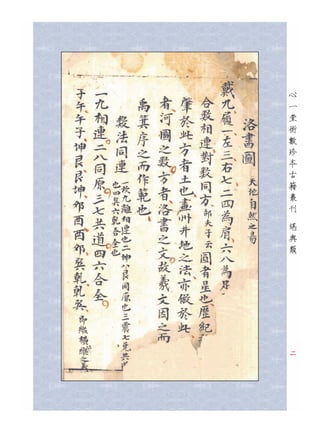 洛書圖 天地自然之易
戴九履一左三右七二四為肩六八為足
合數相連對數同方 邵夫子云 圓者星也歷紀
肇於此方者土也畫州井地之法亦倣於此
者河圖之數方者洛書之文故羲文因之而
禹箕序之而作範也
數法同連 一坎九離相連也二坤八艮同原也三震七兌共
也四巽六乾合全也
一九相連二八同原三七共道四六合全
子午午子坤艮艮坤卯酉酉卯巽乾乾巽
心一堂術數珍本古籍叢刊 堪輿類
二